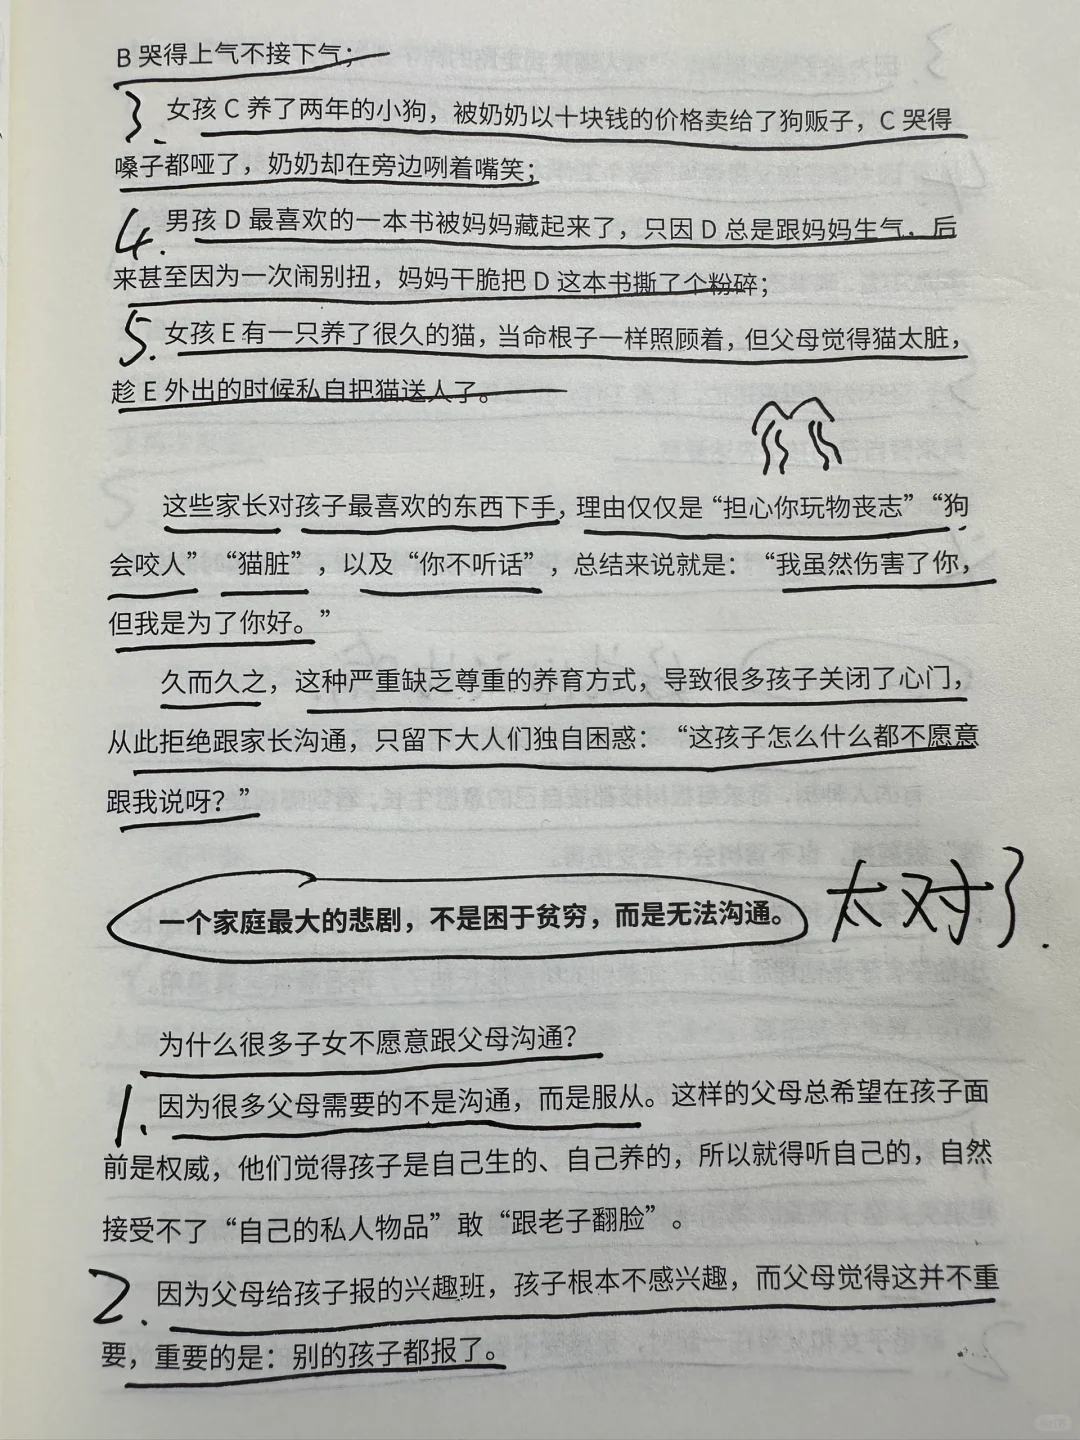 B 哭得上气不接下气；
3. 女孩 C 养了两年的小狗，被奶奶以十块钱的价格卖给了狗贩子，C 哭得
嗓子都哑了，奶奶却在旁边咧着嘴笑；
4. 男孩 D 最喜欢的一本书被妈妈藏起来了，只因 D 总是跟妈妈生气，后
来甚至因为一次闹别扭，妈妈干脆把 D 这本书撕了个粉碎；
5. 女孩 E 有一只养了很久的猫，当命根子一样照顾着，但父母觉得猫太脏，
趁 E 外出的时候私自把猫送人了。
这些家长对孩子最喜欢的东西下手，理由仅仅是“担心你玩物丧志”“狗
会咬人”“猫脏”，以及“你不听话”，总结来说就是：“我虽然伤害了你，
但我是为了你好。”
久而久之，这种严重缺乏尊重的养育方式，导致很多孩子关闭了心门，
从此拒绝跟家长沟通，只留下大人们独自困惑：“这孩子怎么什么都不愿意
跟我说呀？”
一个家庭最大的悲剧，不是困于贫穷，而是无法沟通。 太对了.
为什么很多子女不愿意跟父母沟通？
1. 因为很多父母需要的不是沟通，而是服从。这样的父母总希望在孩子面
前是权威，他们觉得孩子是自己生的、自己养的，所以就得听自己的，自然
接受不了“自己的私人物品”敢“跟老子翻脸”。
2. 因为父母给孩子报的兴趣班，孩子根本不感兴趣，而父母觉得这并不重
要，重要的是：别的孩子都报了。